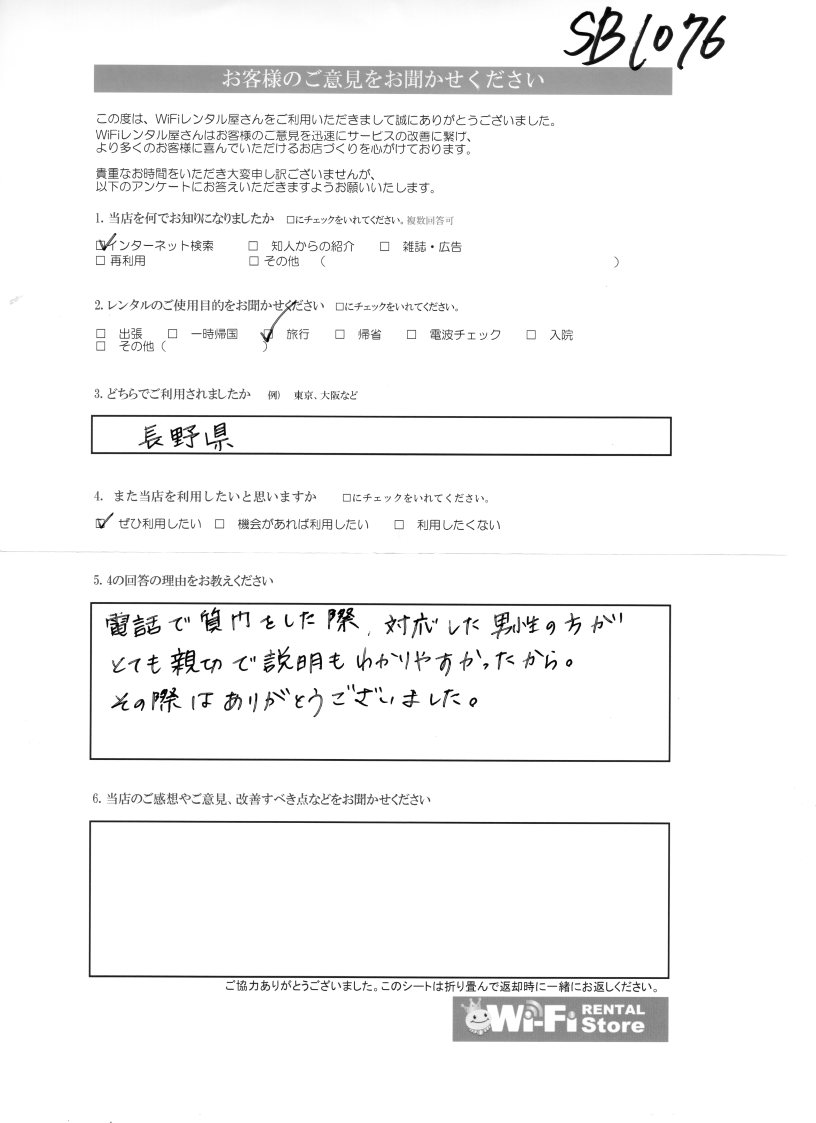 SB1076
お客様のご意見をお聞かせください
この度は、WiFiレンタル屋さんをご利用いただきまして誠にありがとうございました。
WiFiレンタル屋さんはお客様のご意見を迅速にサービスの改善に繋げ、
より多くのお客様に喜んでいただけるお店づくりを心がけております。
貴重なお時間をいただき大変申し訳ございませんが、
以下のアンケートにお答えいただきますようお願いいたします。
1. 当店を何でお知りになりましたか □にチェックをいれてください。複数回答可
☑インターネット検索 □ 知人からの紹介 □ 雑誌・広告
□ 再利用 □ その他 （ ）
2. レンタルのご使用目的をお聞かせください □にチェックをいれてください。
□ 出張 □ 一時帰国 ☑ 旅行 □ 帰省 □ 電波チェック □ 入院
□ その他（ ）
3. どちらでご利用されましたか 例） 東京、大阪など
長野県
4. また当店を利用したいと思いますか □にチェックをいれてください。
☑ ぜひ利用したい □ 機会があれば利用したい □ 利用したくない
5. 4の回答の理由をお教えください
電話で質問をした際、対応した男性の方が
とても親切で説明もわかりやすかったから。
その際はありがとうございました。
6. 当店のご感想やご意見、改善すべき点などをお聞かせください
ご協力ありがとうございました。このシートは折り畳んで返却時に一緒にお返しください。
Wi-Fi RENTAL Store